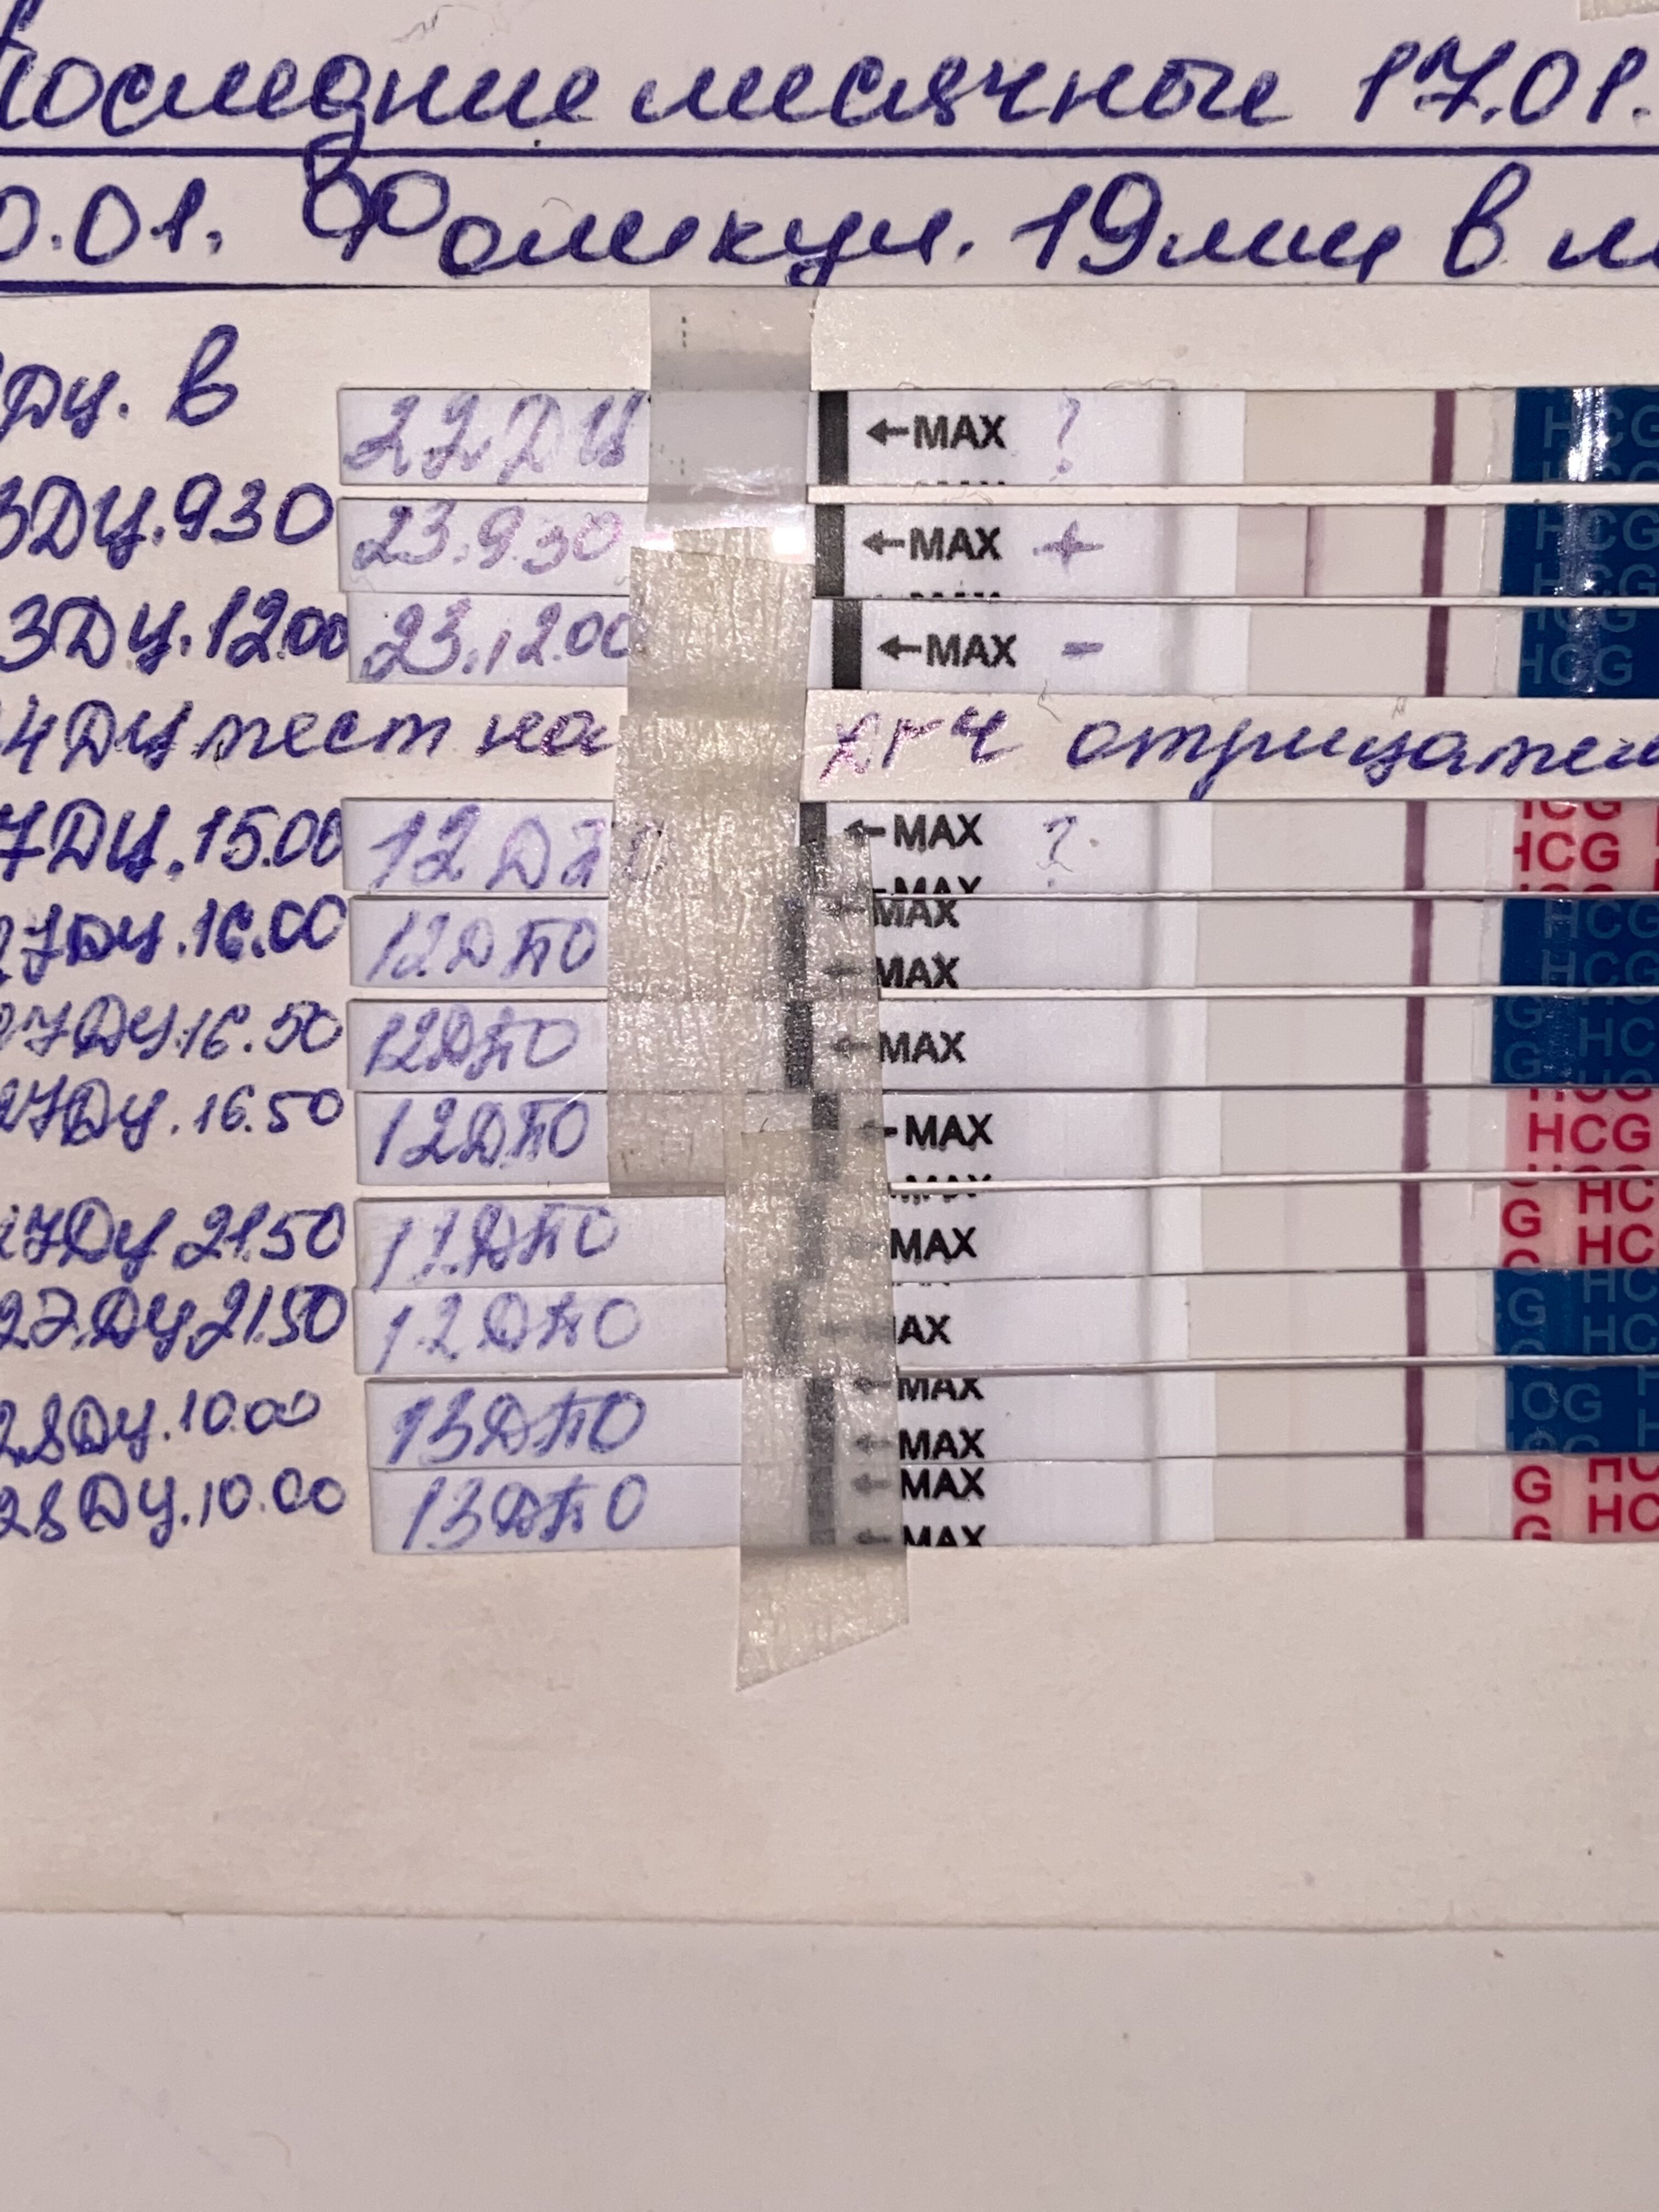 последние месячные 17.01.
0.01. Фоликул. 19мм в л
дц. в 22ДЦ ←MAX ? HCG
3ДЦ.930 23.9.30 ←MAX + HCG HCG
3ДЦ.1200 23.12.00 ←MAX - HCG
4ДЦ тест на ХГЧ отрицател
7ДЦ.15.00 12ДПО ←MAX ? HCG
27ДЦ.16.00 12ДПО ←MAX ←MAX HCG HCG
27ДЦ.16.50 12ДПО ←MAX G HC G
27ДЦ.16.50 12ДПО ←MAX HCG
27ДЦ 21.50 11ДПО MAX G HC HC
27ДЦ 21.50 12ДПО AX G HC HC
28ДЦ.10.00 13ДПО ←MAX ←MAX
28ДЦ.10.00 13ДПО ←MAX ←MAX G HC